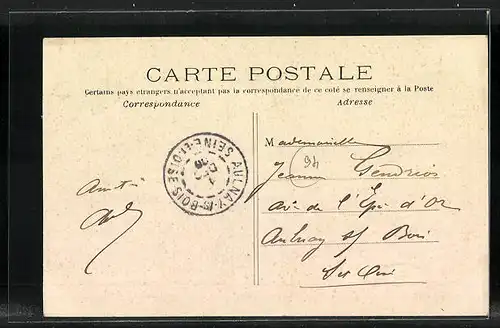 CARTE POSTALE
Certains pays étrangers n'acceptant pas la correspondance de ce coté se renseigner à la Poste
Correspondance
Adresse
Mademoiselle
Jeanne
Av. de l'Epi d'Or
Aulnay s/ Bois
94
AULNAY-S-BOIS
SEINE-ET-OISE
Amitié